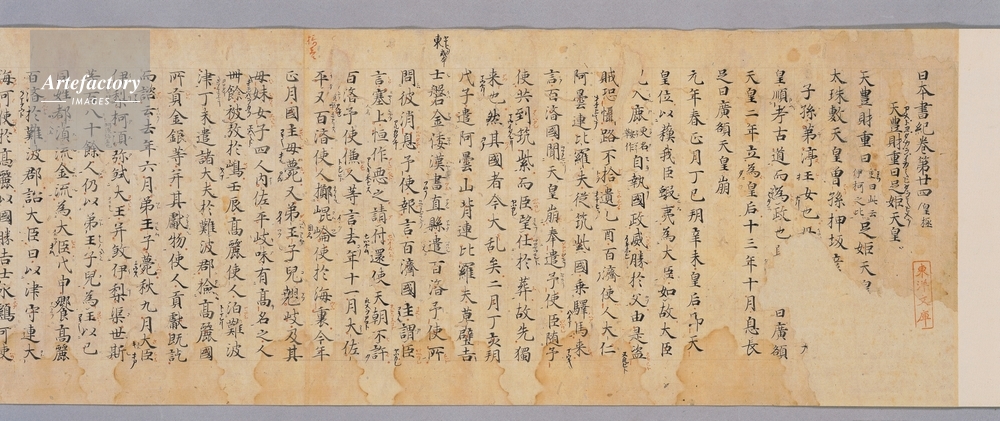 日本書紀卷第廿四 皇極
天豊財重日足姫天皇
天豊財重日 重日此云伊柯之比 足姫天皇
太珠敷天皇曽孫押坂
子孫茅渟王女也
皇順考古道而為政也 日廣額
天皇二年立為皇后十三年十月息長
足日廣額天皇崩
元年春正月丁巳朔辛未皇后即天
皇位以蘓我臣蝦夷為大臣如故大臣
入鹿 自執國政威勝於父由是盗
賊恐懾路不拾遺乙酉百濟使人大仁
阿曇連比羅夫従筑紫國乗驛馬来
言百濟國聞天皇崩奉遣予使臣随予
使共到筑紫而臣望仕於葬故先獨
来也然其國者今大乱矣二月丁亥朔
戊子遣阿曇山背連比羅夫草壁吉
士磐金倭漢書直縣遣百濟予使所
問彼消息予使報言百濟國主謂臣
言塞上恒作悪之請付還使天朝不許
百濟予使傔人等言去年十一月大佐
平 又百濟使人擲崐崘使於海裏今年
正月國主母薨又弟王子兒翹岐及其
母妹女子四人内佐平岐味有髙名之人
卌餘被放於嶋壬辰髙麗使人泊難波
津丁未遣諸大夫於難波郡檢髙麗國
所貢金銀等并其獻物使人貢獻既訖
而諮云去年六月弟王子薨秋九月大臣
伊梨柯須弥 大王并 伊梨渠世斯
等 八十餘人仍以弟王子兒為王以己
同姓都須流金流為大臣戊申饗髙麗
百濟於難波郡詔大臣曰以津守連大
海可使於髙麗以國勝吉士水鷄可使
東洋文庫
Artefactory
IMAGES